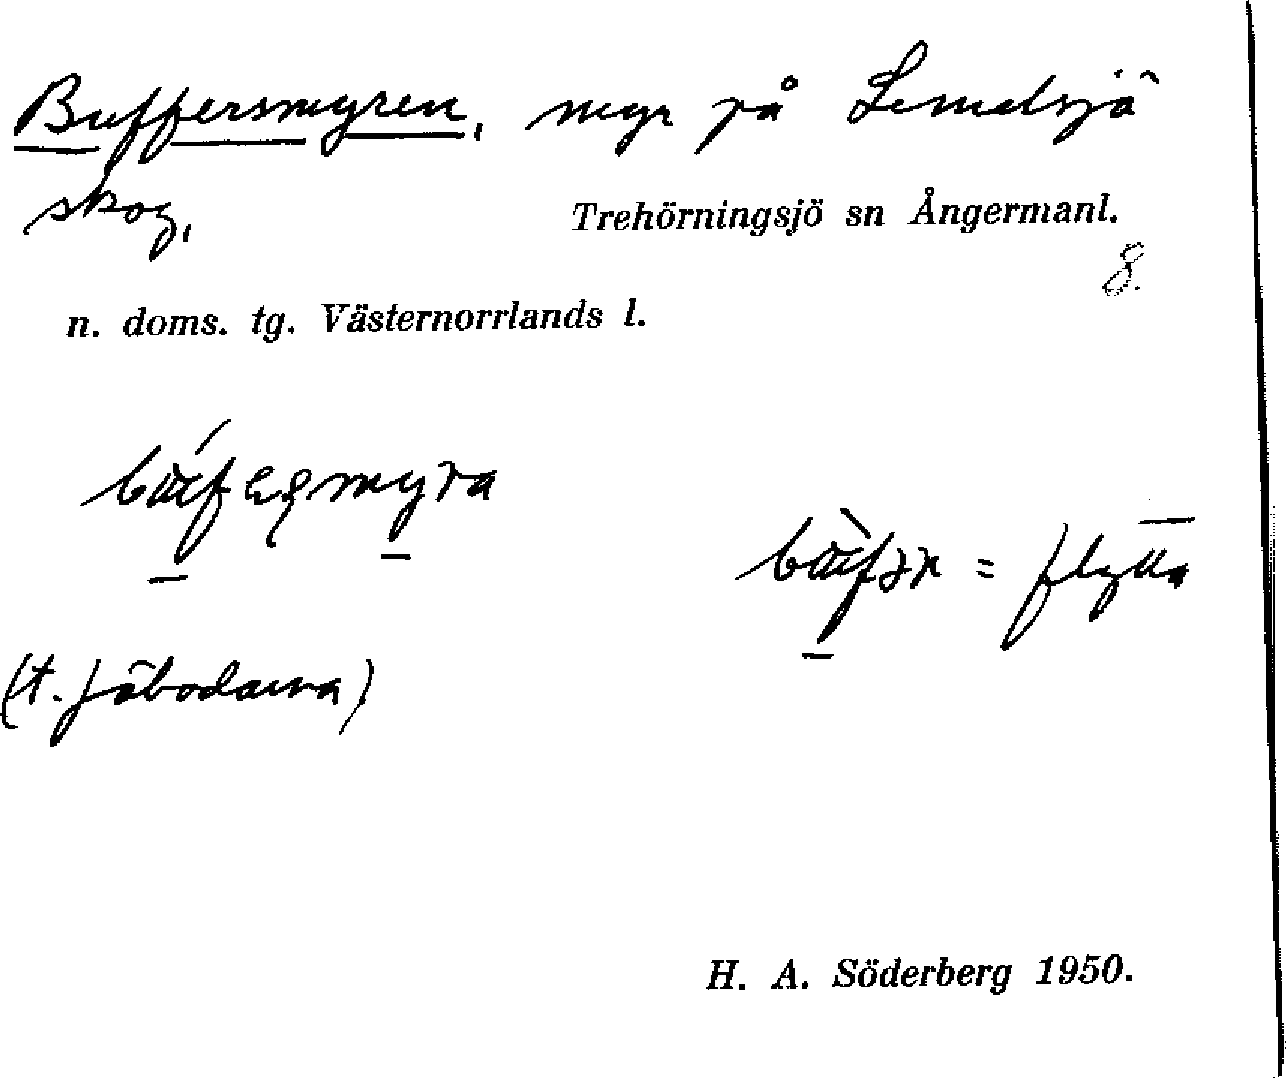 Buffersmyren, myr på Lemelsjö
skog,
Trehörningsjö sn Ångermanl.
8.
n. doms. tg. Västernorrlands l.
= flytta
(t. fäbodarna)
H. A. Söderberg 1950.